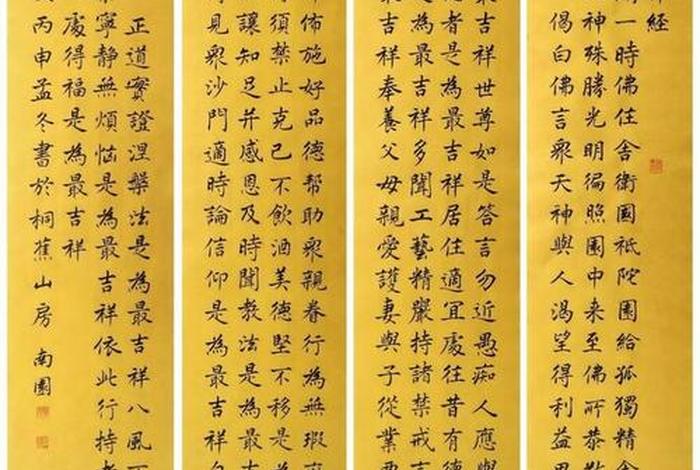 經
一時佛住舍衛國祇陀園給孤獨精
神殊勝光明徧照園中来至佛所恭敬
偈白佛言眾天神與人渴望得利益思
最吉祥世尊如是答言勿近愚痴人應與
者是為最吉祥居住適宜處往昔有德
為最吉祥多聞工藝精嚴持諸禁戒言
吉祥奉養父母親愛護妻與子從業要
佈施好品德幫助眾親眷行為無瑕疵
須禁止克己不飲酒美德堅不移是
讓知足并感恩及時聞教法是為最
見眾沙門適時論信仰是為最吉祥自
正道實證涅槃法是為最吉祥八風不
寧静無煩惱是為最吉祥依此行持者
處得福是為最吉祥
丙申孟冬書於桐蕉山房 南園